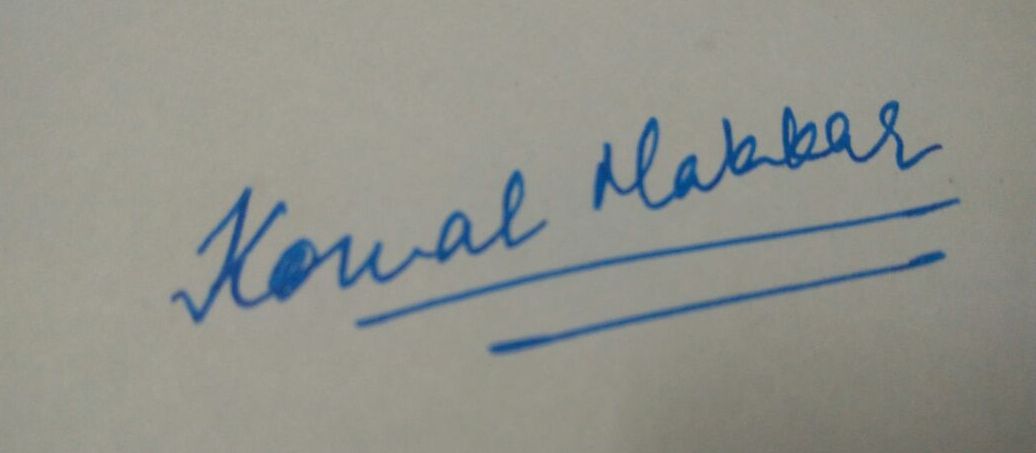 Kowal Makkar